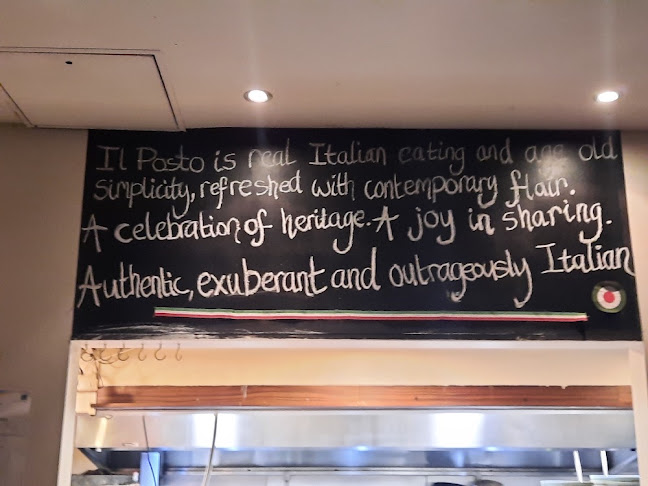 Il Posto is real Italian eating and age old
simplicity, refreshed with contemporary flair.
A celebration of heritage. A joy in sharing.
Authentic, exuberant and outrageously Italian